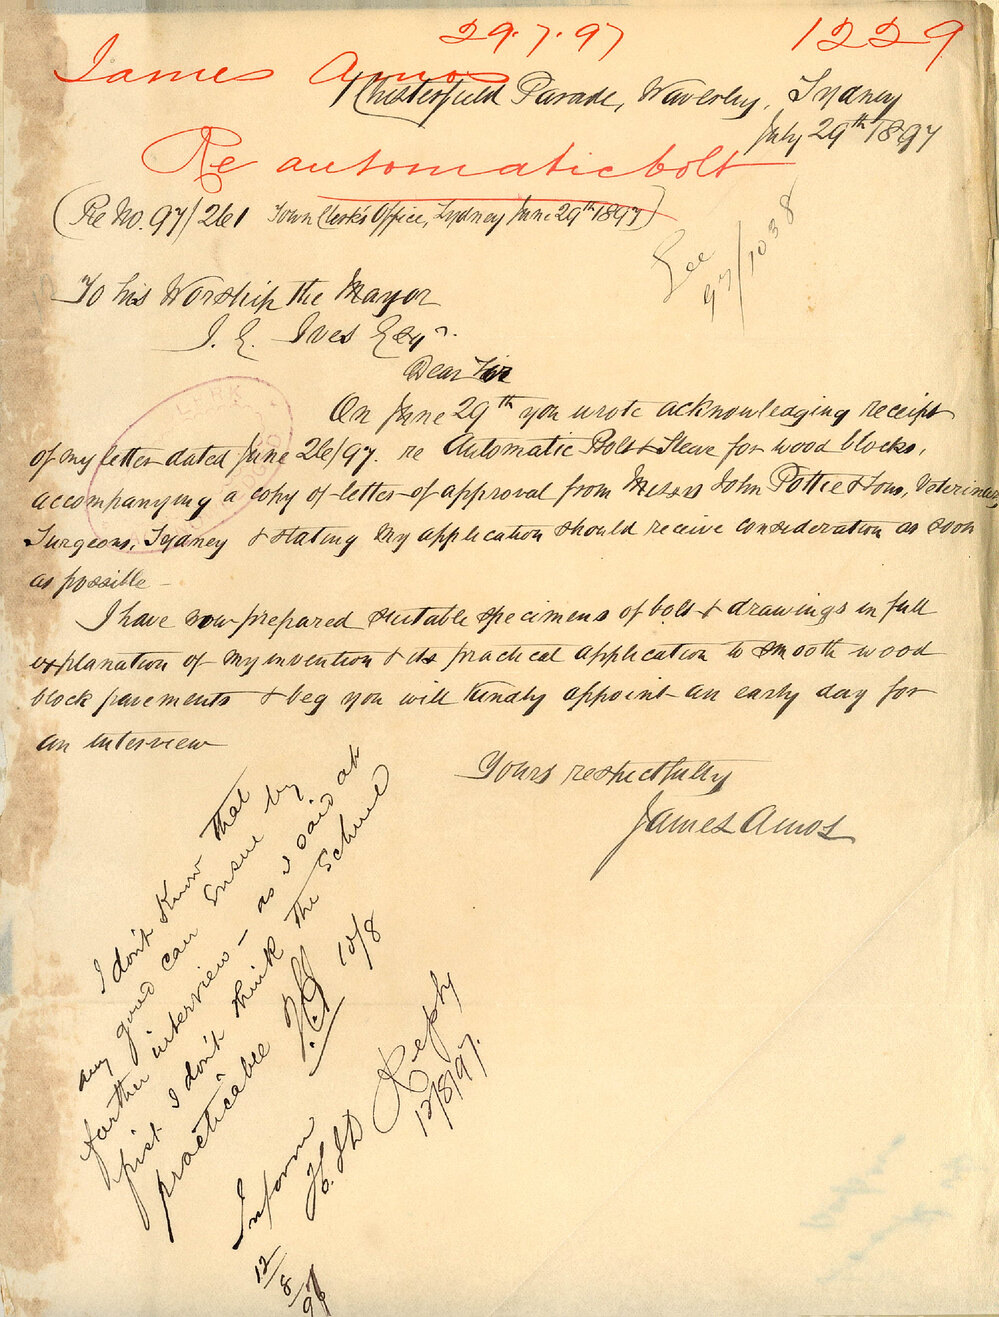 29.7.97
1229
James Amos
Chesterfield Parade, Waverley, Sydney
July 29th 1897
Re automatic bolt
(Re No. 97/261 Town Clerk's Office, Sydney June 29th 1897)
See
97/1038
To his Worship the Mayor
I. E. Ives Esqr.
Dear Sir
On June 29th you wrote acknowledging receipt
of my letter dated June 26/97. re Automatic Bolt & Sleeve for wood blocks,
accompanying a copy of letter of approval from Messrs John Pottie & Sons, Veterinary
Surgeons, Sydney & stating my application should receive consideration as soon
as possible —
I have now prepared suitable specimens of bolt & drawings in full
explanation of my invention & its practical application to smooth wood
block pavements & beg you will kindly appoint an early day for
an interview
Yours respectfully
James Amos
I don't know that
any good can ensue by
further interview — as I said at
first I don't think the scheme
practicable
10/8
Inform
12/8/97
Reply
12/8/97.